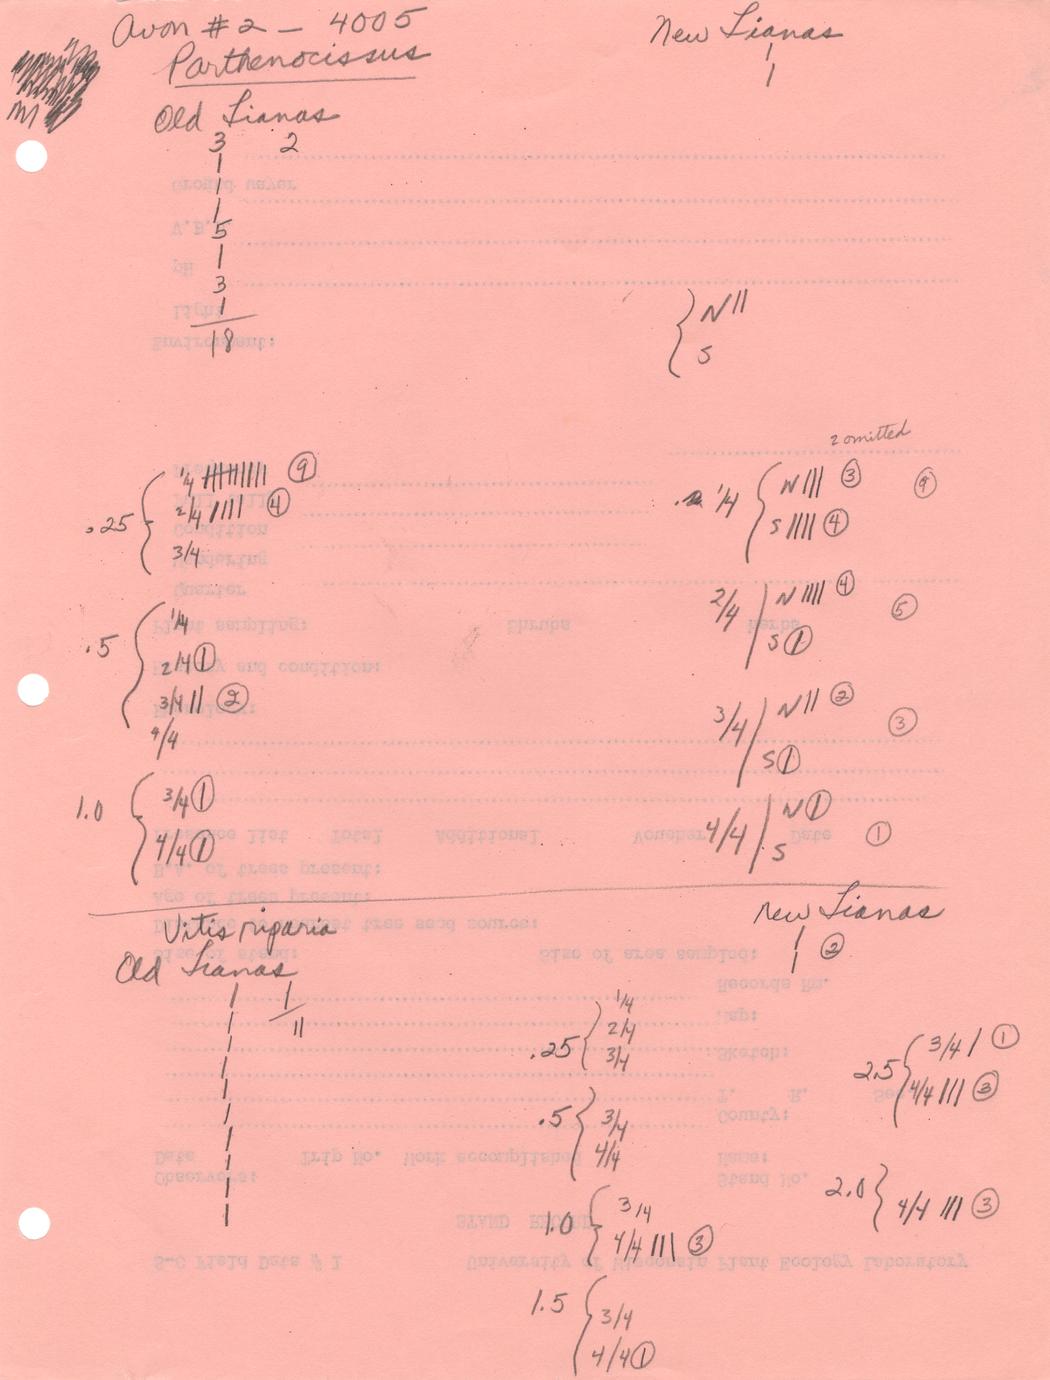 Avon #2 - 4005
Parthenocissus
New Lianas
1
1
Old Lianas
3 2
1
1
1
5
1
3
1
18
{ N ||
S
2 omitted
.25 { 1/4 ||||||||| ⑨
2/4 |||| ④
3/4
.5 { 1/4
2/4 ①
3/4 || ②
4/4
1.0 { 3/4 ①
4/4 ①
1/4 { N ||| ③ ⑨
S |||| ④
2/4 | N |||| ④ ⑤
S ①
3/4 | N || ② ③
S ①
4/4 | N ① ①
S
Vitis riparia
Old Lianas
1 1
1 11
1
1
1
1
1
1
1
1
new Lianas
1 ②
1
.25 { 1/4
2/4
3/4
.5 { 3/4
4/4
1.0 { 3/4
4/4 ||| ③
1.5 { 3/4
4/4 ①
2.5 { 3/4 | ①
4/4 ||| ③
2.0 { 4/4 ||| ③
Environment:
Light
pH
V.B.
Ground layer
Quarter
Condition
Plant sampling: Shrubs Herbs
Presence list Total Additional Voucher Date
B.A. of trees present:
Age of trees present:
Size of stand: Size of area sampled:
Records Rm.
Map:
Sketch:
T. R. Sec.
County:
Date Trip No. Work accomplished Name:
Observers: Stand No.
STAND RECORD
S-C Field Data # 1 University of Wisconsin Plant Ecology Laboratory